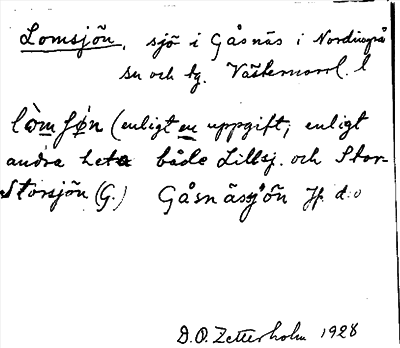 Lomsjön, sjö i Gåsnäs i Nordingrå
sn och tg. Västernorrl. l
lòmʃø̀n (enligt en uppgift; enligt
andra heta både Lillsj. och Stor-
Storsjön (G.) Gåsnässjön Jfr d:o
D.O. Zetterholm 1928